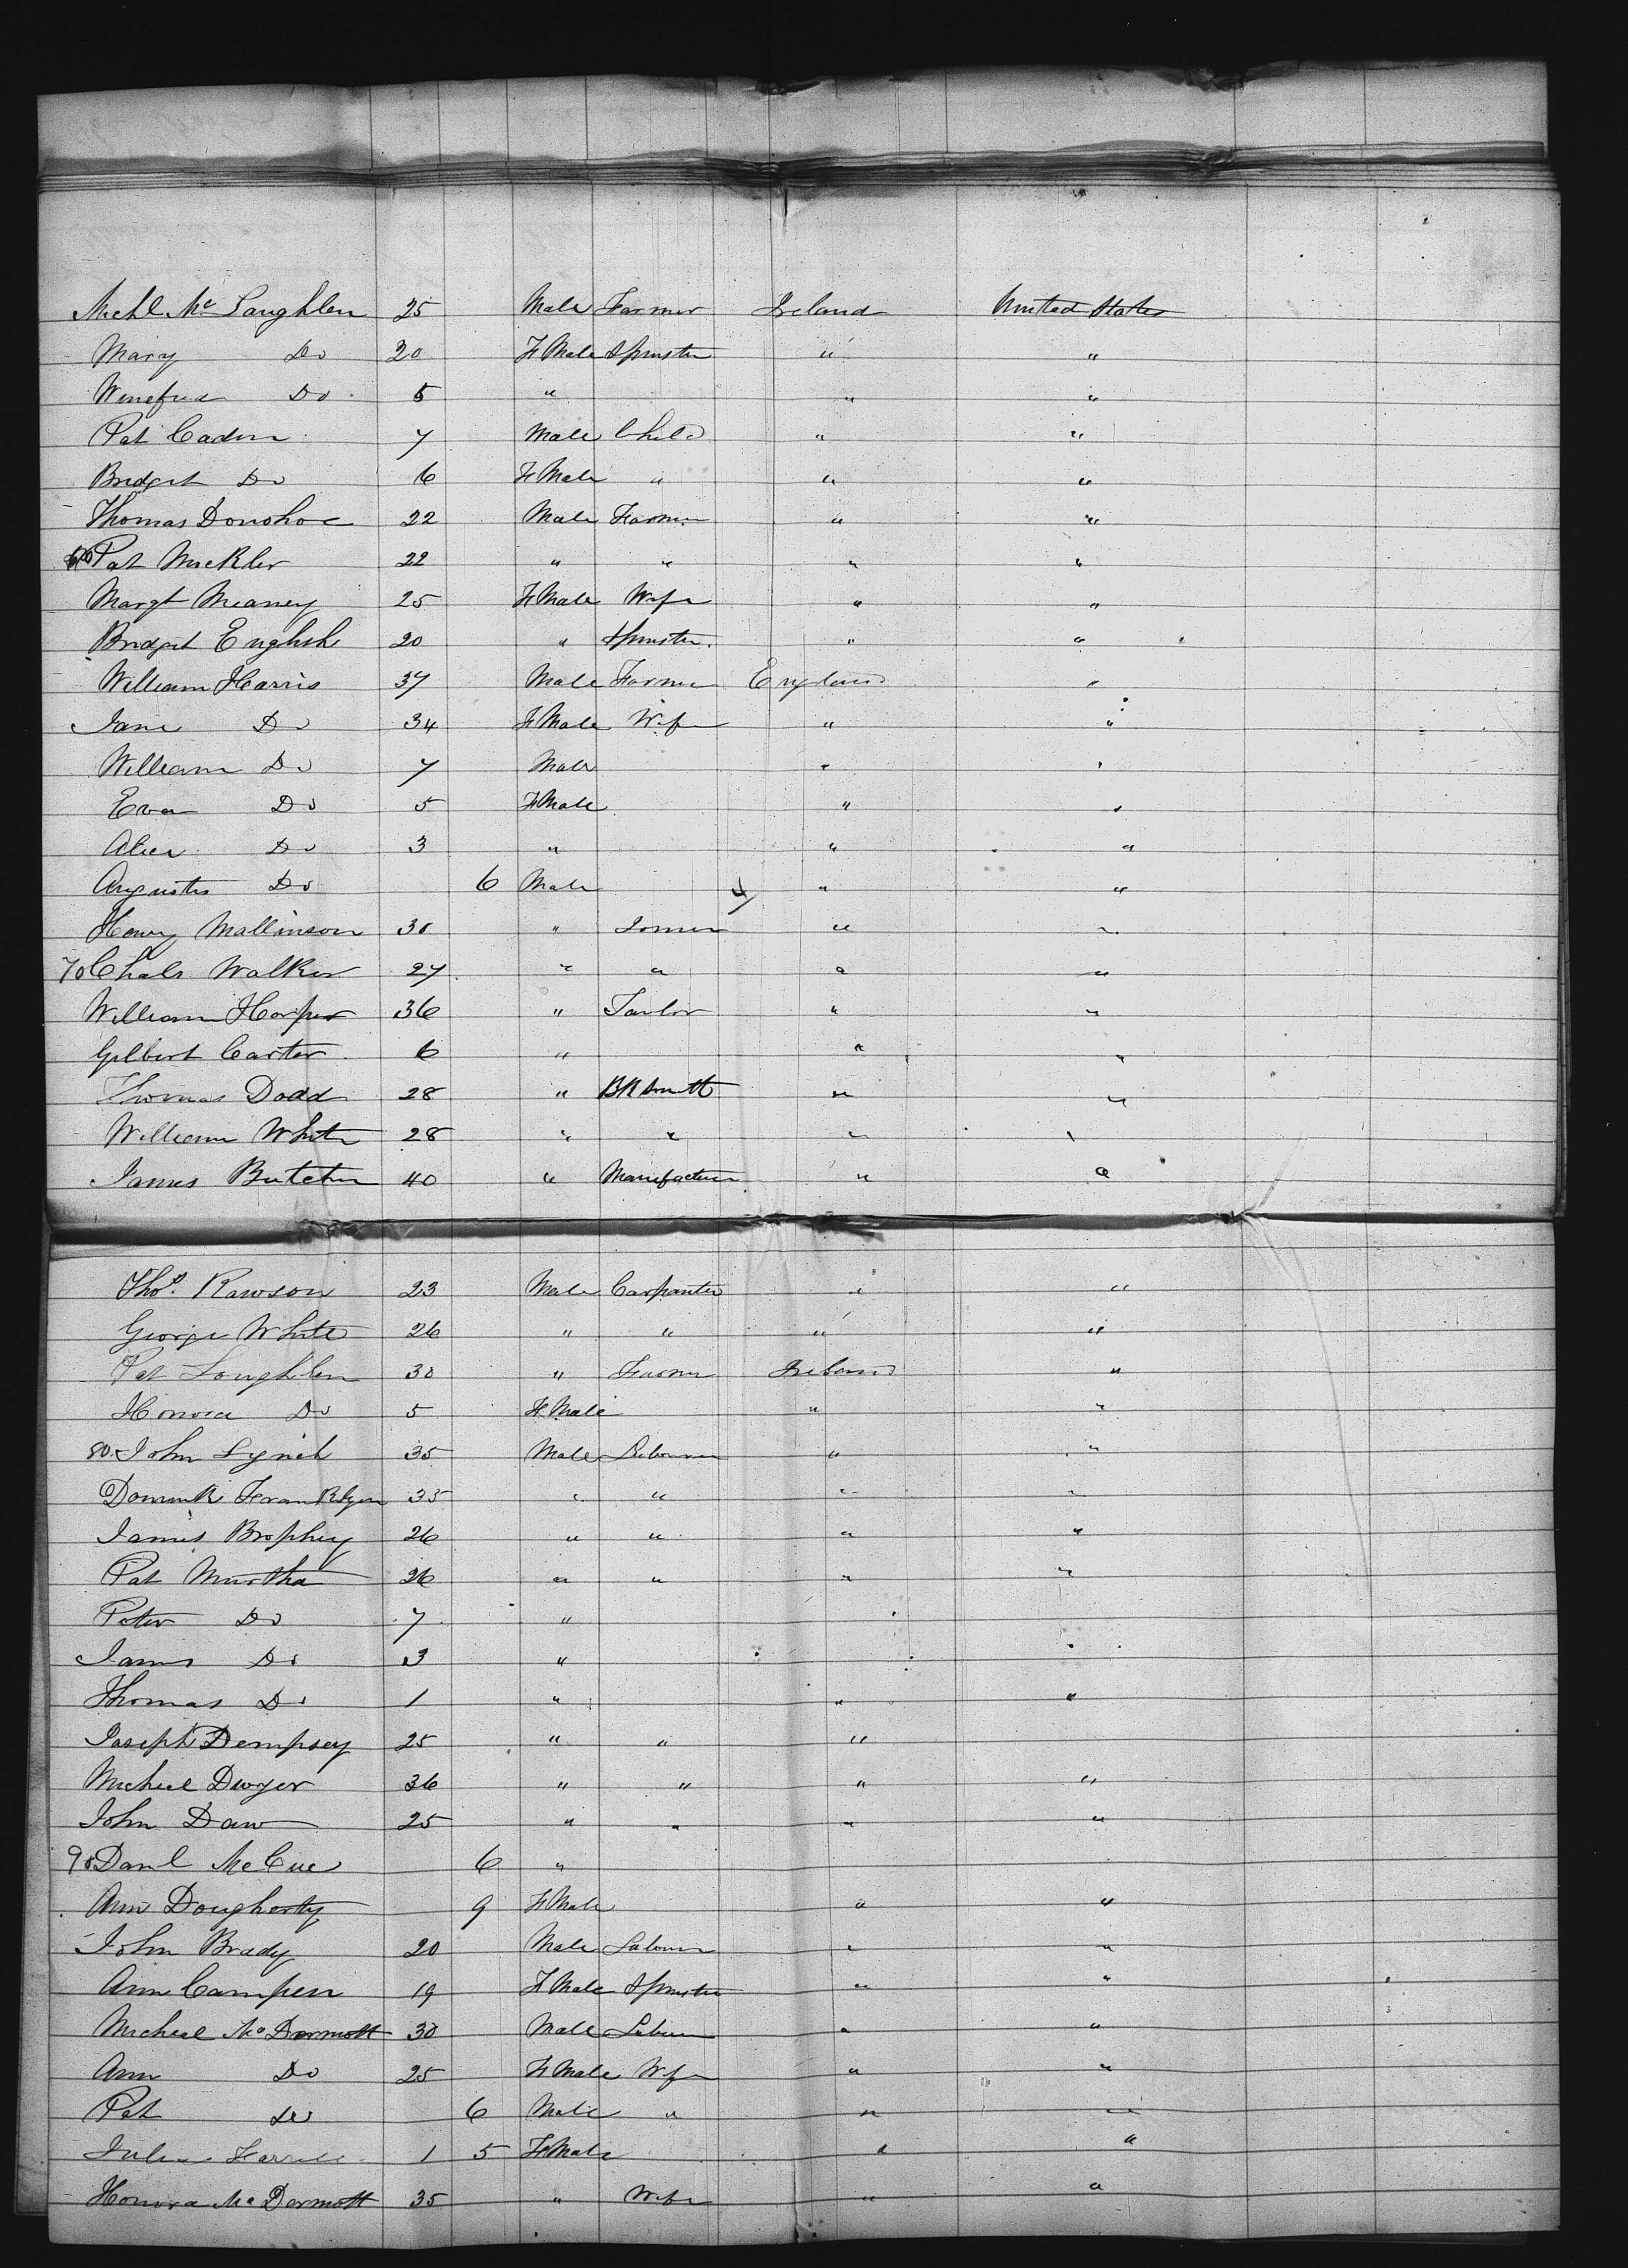 Michl Mc Laughlen 25 Male Farmer Ireland United States
Mary Do 20 F Male Spinster " "
Winefred Do 5 " " "
Pat Caden 7 Male Child " "
Bridget Do 6 F Male " " "
Thomas Donohoe 22 Male Farmer " "
60 Pat Mickler 22 " " " "
Margt Meaney 25 F Male Wife " "
Bridget English 20 " Spinster " "
William Harris 37 Male Farmer England "
Jane Do 34 F Male Wife " "
William Do 7 Male " "
Eva Do 5 F Male " "
Alice Do 3 " " "
Augustus Do 6 Male 4 " "
Henry Mallinson 30 " Joiner " "
70 Chals Walker 27 " " " "
William Harper 36 " Taylor " "
Gilbert Carter 6 " " "
Thomas Dodd 28 " Bk Smith " "
William White 28 " " " "
James Butcher 40 " Manufacturer " "
Thos. Rawson 23 Male Carpanter " "
George White 26 " " " "
Pat Loughlen 30 " Farmer Ireland "
Honora Do 5 F Male " "
80 John Lynch 35 Male Labourer " "
Dominik 35 " " " "
James Brophy 26 " " " "
Pat Murtha 26 " " " "
Peter Do 7 "
James Do 3 "
Thomas Do 1 " " "
Joseph Dempsey 25 " " "
Micheal Dwyer 36 " " " "
John Daw 25 " " " "
90 Danl McCue 6 "
Ann Dougherty 9 F Male " "
John Brady 20 Male Labourer " "
Ann Campen 19 F Male Spinster " "
Micheal Mc Dermott 30 Male Labourer " "
Ann Do 25 F Male Wife " "
Pat Do 6 Male " " "
Julia Farrell 1 5 F Male " "
Honora Mc Dermott 35 " Wife " "